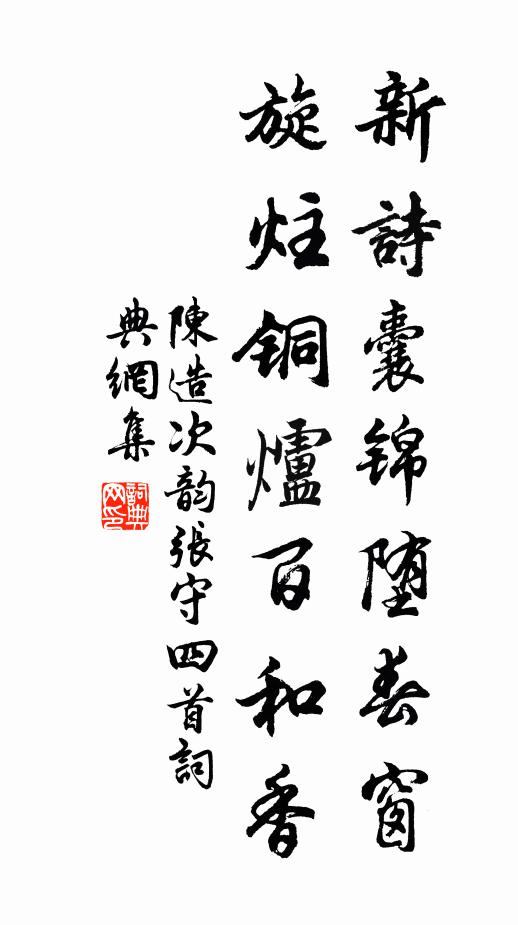 新詩囊锦堕春窗
旋炷铜爐百和香
陳造次韵張守四首詞
典網集
詞典网印